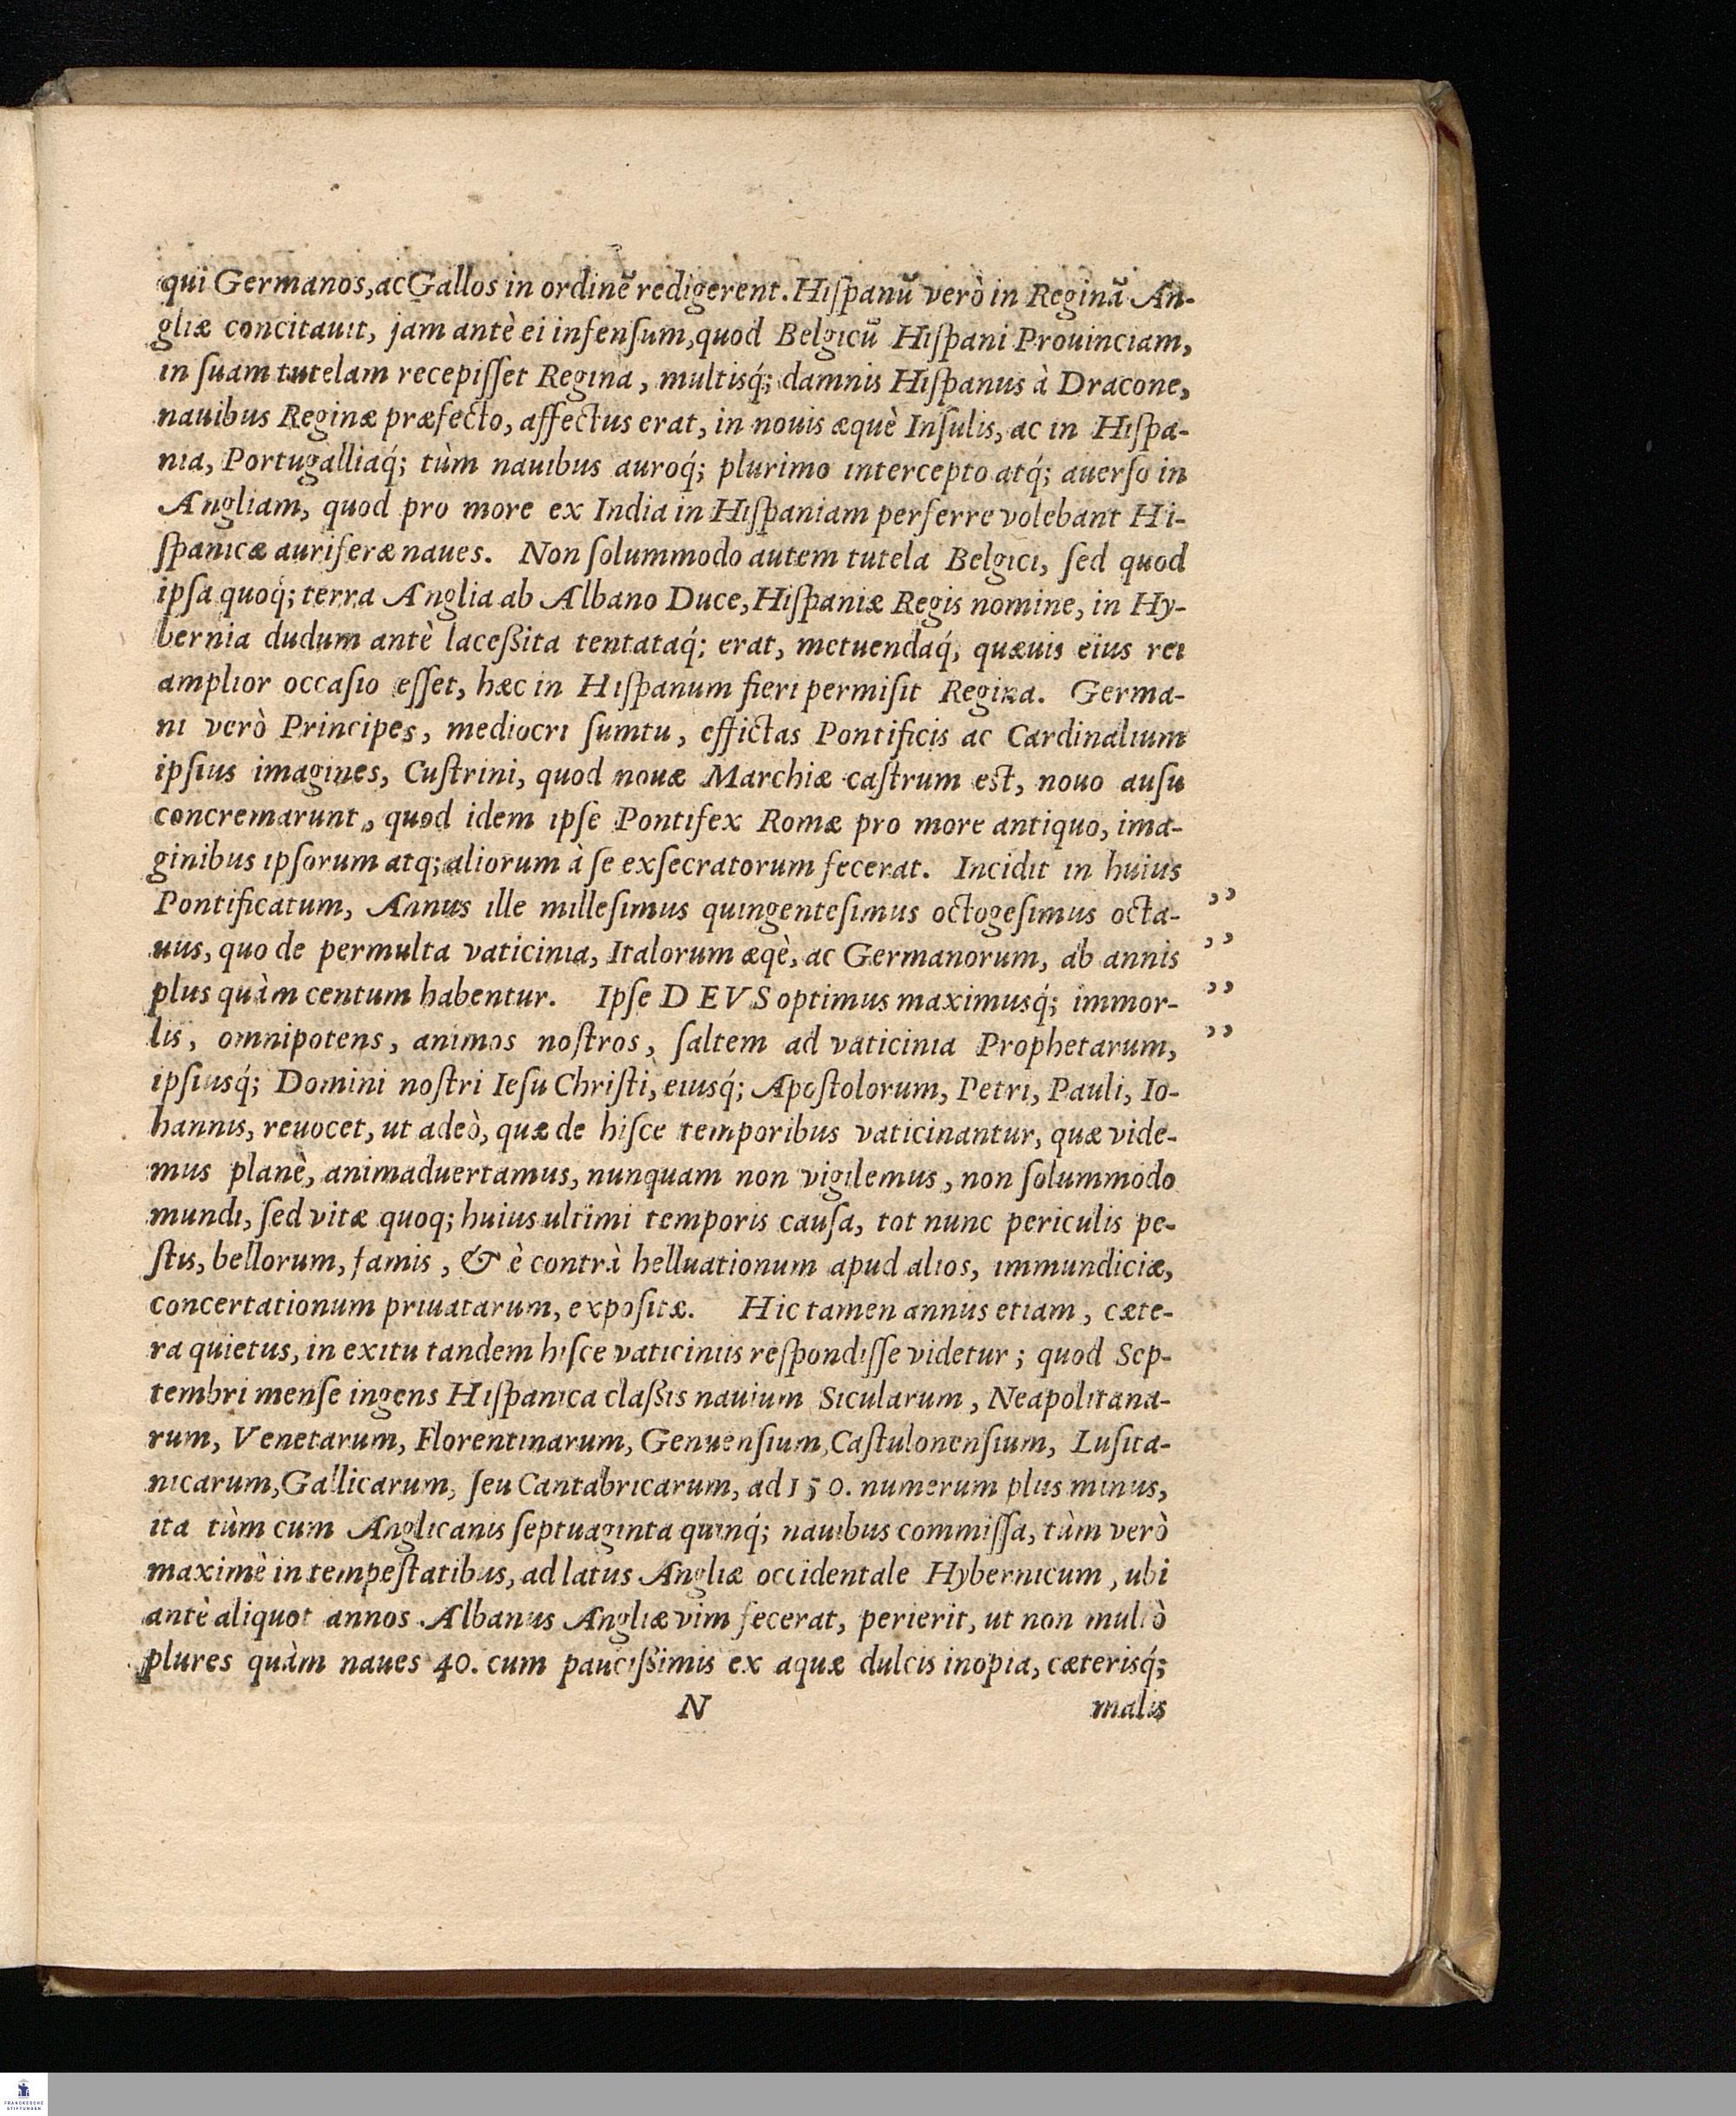 qui Germanos, ac Gallos in ordinẽ redigerent. Hiſpanũ verò in Reginã An-
gliæ concitauit, jam antè ei infenſum, quod Belgicũ Hiſpani Prouinciam,
in ſuam tutelam recepiſſet Regina, multisq́; damnis Hiſpanus à Dracone,
nauibus Reginæ præfecto, affectus erat, in nouis æquè Inſulis, ac in Hiſpa-
nia, Portugalliaq́; tùm nauibus auroq́; plurimo intercepto atq́; auerſo in
Angliam, quod pro more ex India in Hiſpaniam perferre volebant Hi-
ſpanicæ auriferæ naues. Non ſolummodo autem tutela Belgici, ſed quod
ipſa quoq́; terra Anglia ab Albano Duce, Hiſpaniæ Regis nomine, in Hy-
bernia dudum antè laceßita tentataq́; erat, metuendaq́, quæuis eius rei
amplior occaſio eſſet, hæc in Hiſpanum fieri permiſit Regina. Germa-
ni verò Principes, mediocri ſumtu, effictas Pontificis ac Cardinalium
ipſius imagines, Cuſtrini, quod nouæ Marchiæ caſtrum est, nouo auſu
concremarunt, quod idem ipſe Pontifex Romæ pro more antiquo, ima-
ginibus ipſorum atq; aliorum à ſe exſecratorum fecerat. Incidit in huius
Pontificatum, Annus ille milleſimus quingenteſimus octogeſimus octa- ,,
uus, quo de permulta vaticinia, Italorum æqè, ac Germanorum, ab annis ,,
plus quàm centum habentur. Ipſe DEVS optimus maximusq́; immor- ,,
lis, omnipotens, animos noſtros, ſaltem ad vaticinia Prophetarum, ,,
ipſiusq́; Domini noſtri Ieſu Chriſti, eiusq́; Apoſtolorum, Petri, Pauli, Io-
hannis, reuocet, ut adeò, quæ de hiſce temporibus vaticinantur, quæ vide-
mus planè, animaduertamus, nunquam non vigilemus, non ſolummodo
mundi, ſed vitæ quoq; huius ultimi temporis cauſa, tot nunc periculis pe-
ſtis, bellorum, famis, & è contrà helluationum apud alios, immundiciæ,
concertationum priuatarum, expoſitæ. Hic tamen annus etiam, cæte-
ra quietus, in exitu tandem hiſce vaticiniis reſpondiſſe videtur; quod Sep-
tembri menſe ingens Hiſpanica claßis nauium Sicularum, Neapolitana-
rum, Venetarum, Florentinarum, Genuenſium, Caſtulonenſium, Luſita-
nicarum, Gallicarum, ſeu Cantabricarum, ad 150. numerum plus minus,
ita tùm cum Anglicanis ſeptuaginta quinq́; nauibus commiſſa, tùm verò
maximè in tempeſtatibus, ad latus Angliæ occidentale Hybernicum, ubi
antè aliquot annos Albanus Angliæ vim fecerat, perierit, ut non multò
plures quàm naues 40. cum pauciſsimis ex aquæ dulcis inopia, cæterisq́;
N malis
FRANCKESCHE
STIFTUNGEN